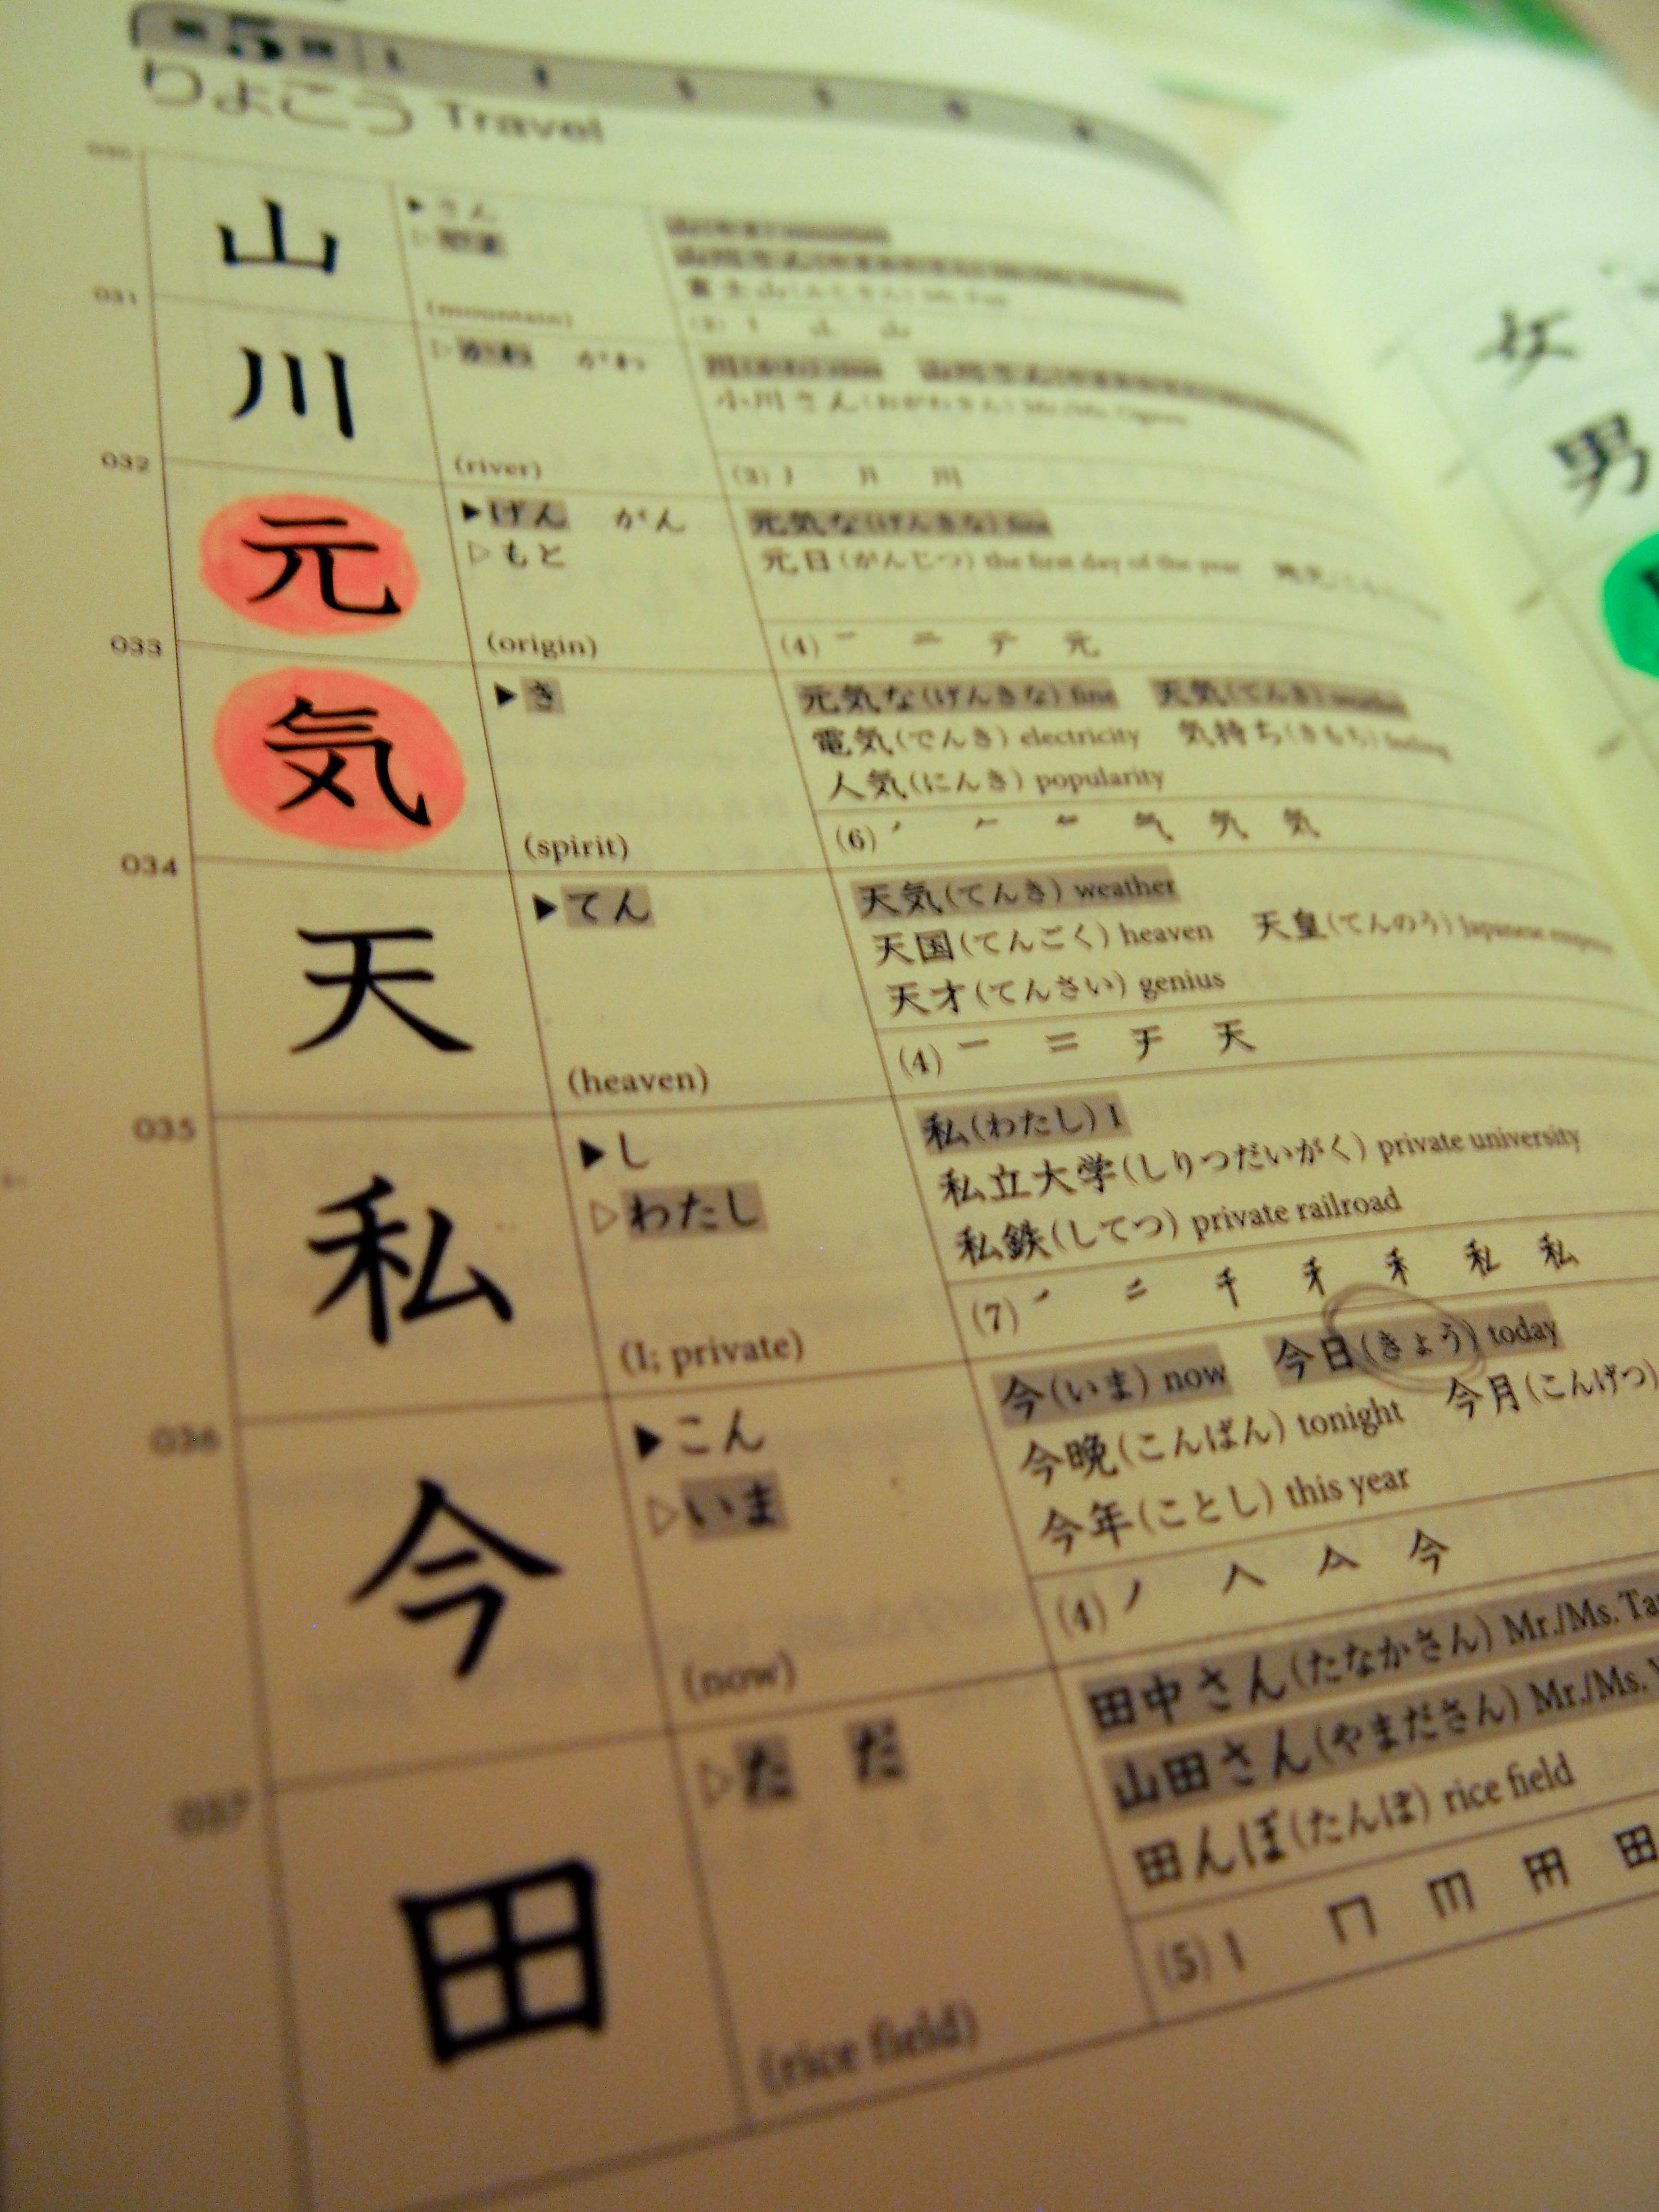 第5課
りょこう Travel
030
山
▶さん
▷やま
(mountain)
山(やま) mountain
富士山(ふじさん) Mt. Fuji
(3) 山
031
川
▷かわ がわ
(river)
川(かわ) river
小川さん(おがわさん) Mr./Ms. Ogawa
(3) 川
032
元
▶げん がん
▷もと
(origin)
元気な(げんきな) fine
元日(がんじつ) the first day of the year
(4) 一 二 テ 元
033
気
▶き
(spirit)
元気な(げんきな) fine 天気(てんき) weather
電気(でんき) electricity 気持ち(きもち) feeling
人気(にんき) popularity
(6) 気
034
天
▶てん
(heaven)
天気(てんき) weather
天国(てんごく) heaven 天皇(てんのう) Japanese emperor
天才(てんさい) genius
(4) 一 二 チ 天
035
私
▶し
▷わたし
(I; private)
私(わたし) I
私立大学(しりつだいがく) private university
私鉄(してつ) private railroad
(7) 私
036
今
▶こん
▷いま
(now)
今(いま) now 今日(きょう) today
今晩(こんばん) tonight 今月(こんげつ)
今年(ことし) this year
(4) ノ 今
037
田
▷た だ
(rice field)
田中さん(たなかさん) Mr./Ms. Ta
山田さん(やまださん) Mr./Ms. Y
田んぼ(たんぼ) rice field
(5) 田
女
男